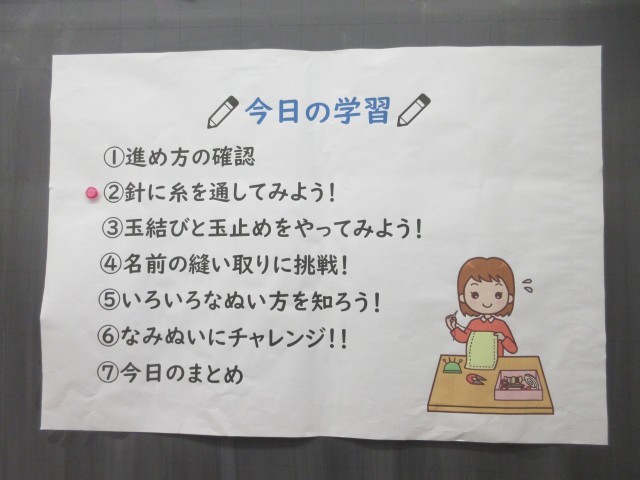 今日の学習
①進め方の確認
②針に糸を通してみよう！
③玉結びと玉止めをやってみよう！
④名前の縫い取りに挑戦！
⑤いろいろなぬい方を知ろう！
⑥なみぬいにチャレンジ！！
⑦今日のまとめ